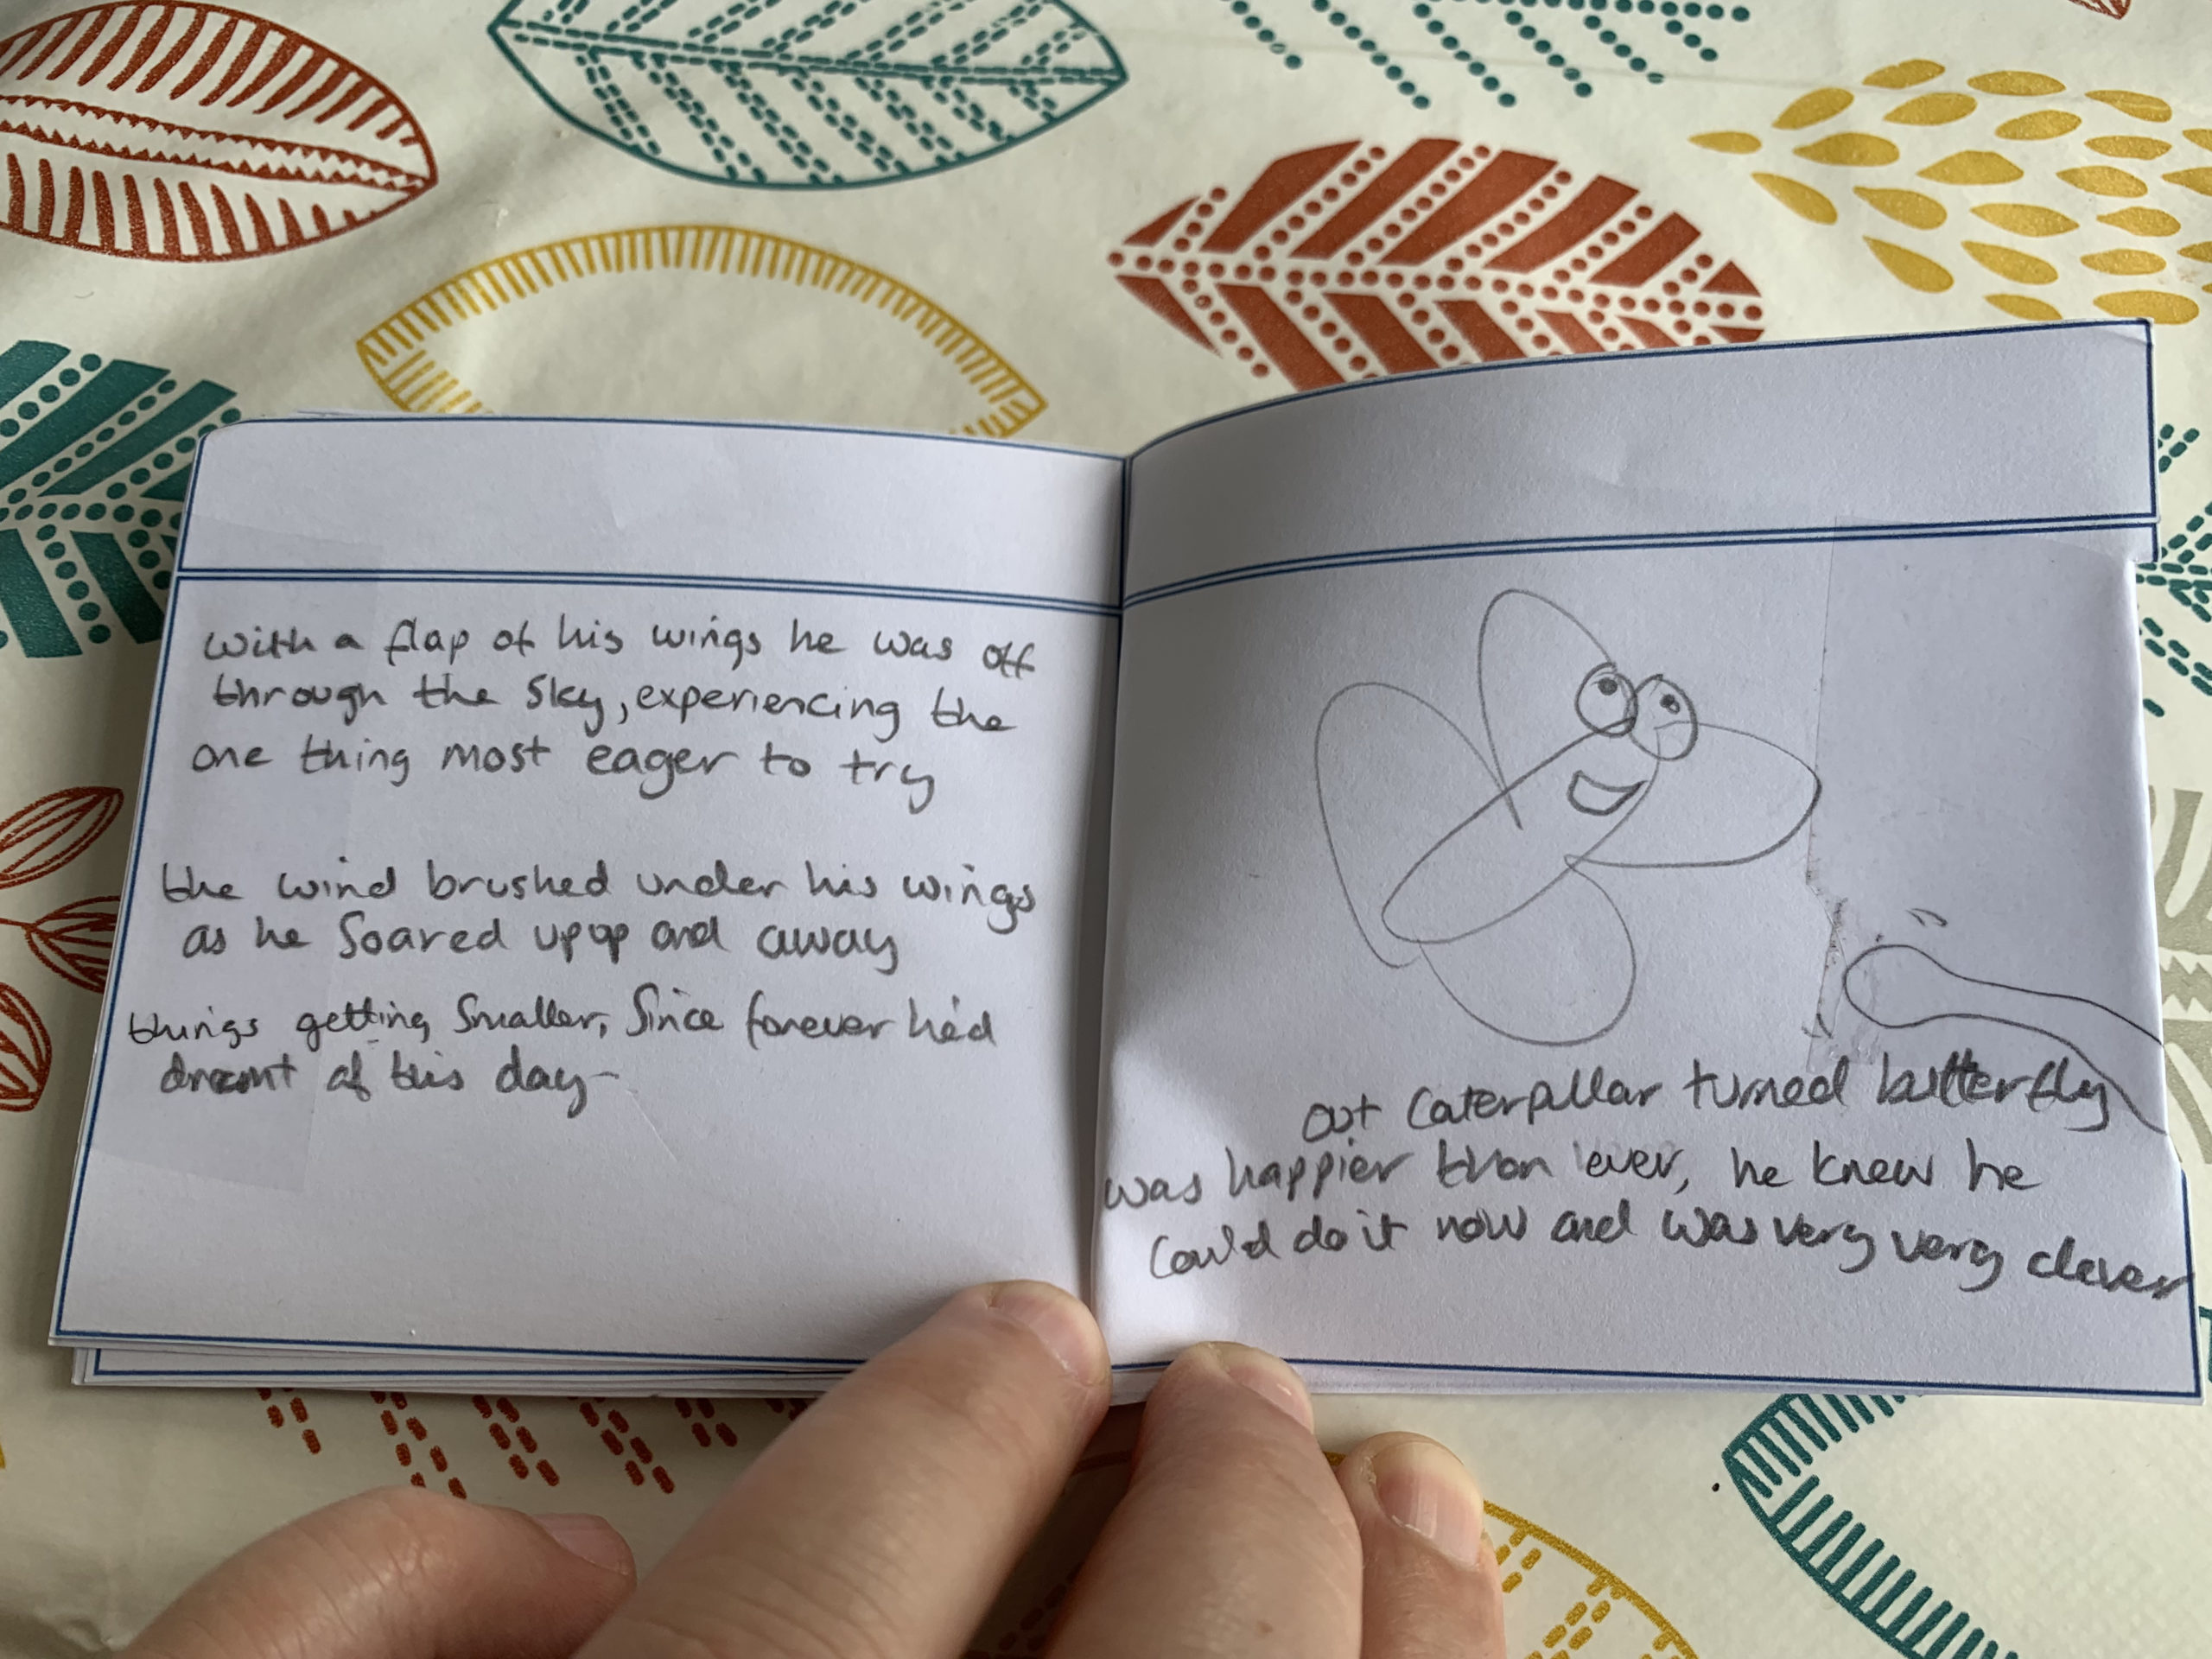 with a flap of his wings he was off
through the sky, experiencing the
one thing most eager to try
the wind brushed under his wings
as he soared up up and away
things getting smaller, since forever he'd
dreamt of this day
out caterpillar turned butterfly
was happier than ever, he knew he
could do it now and was very very clever